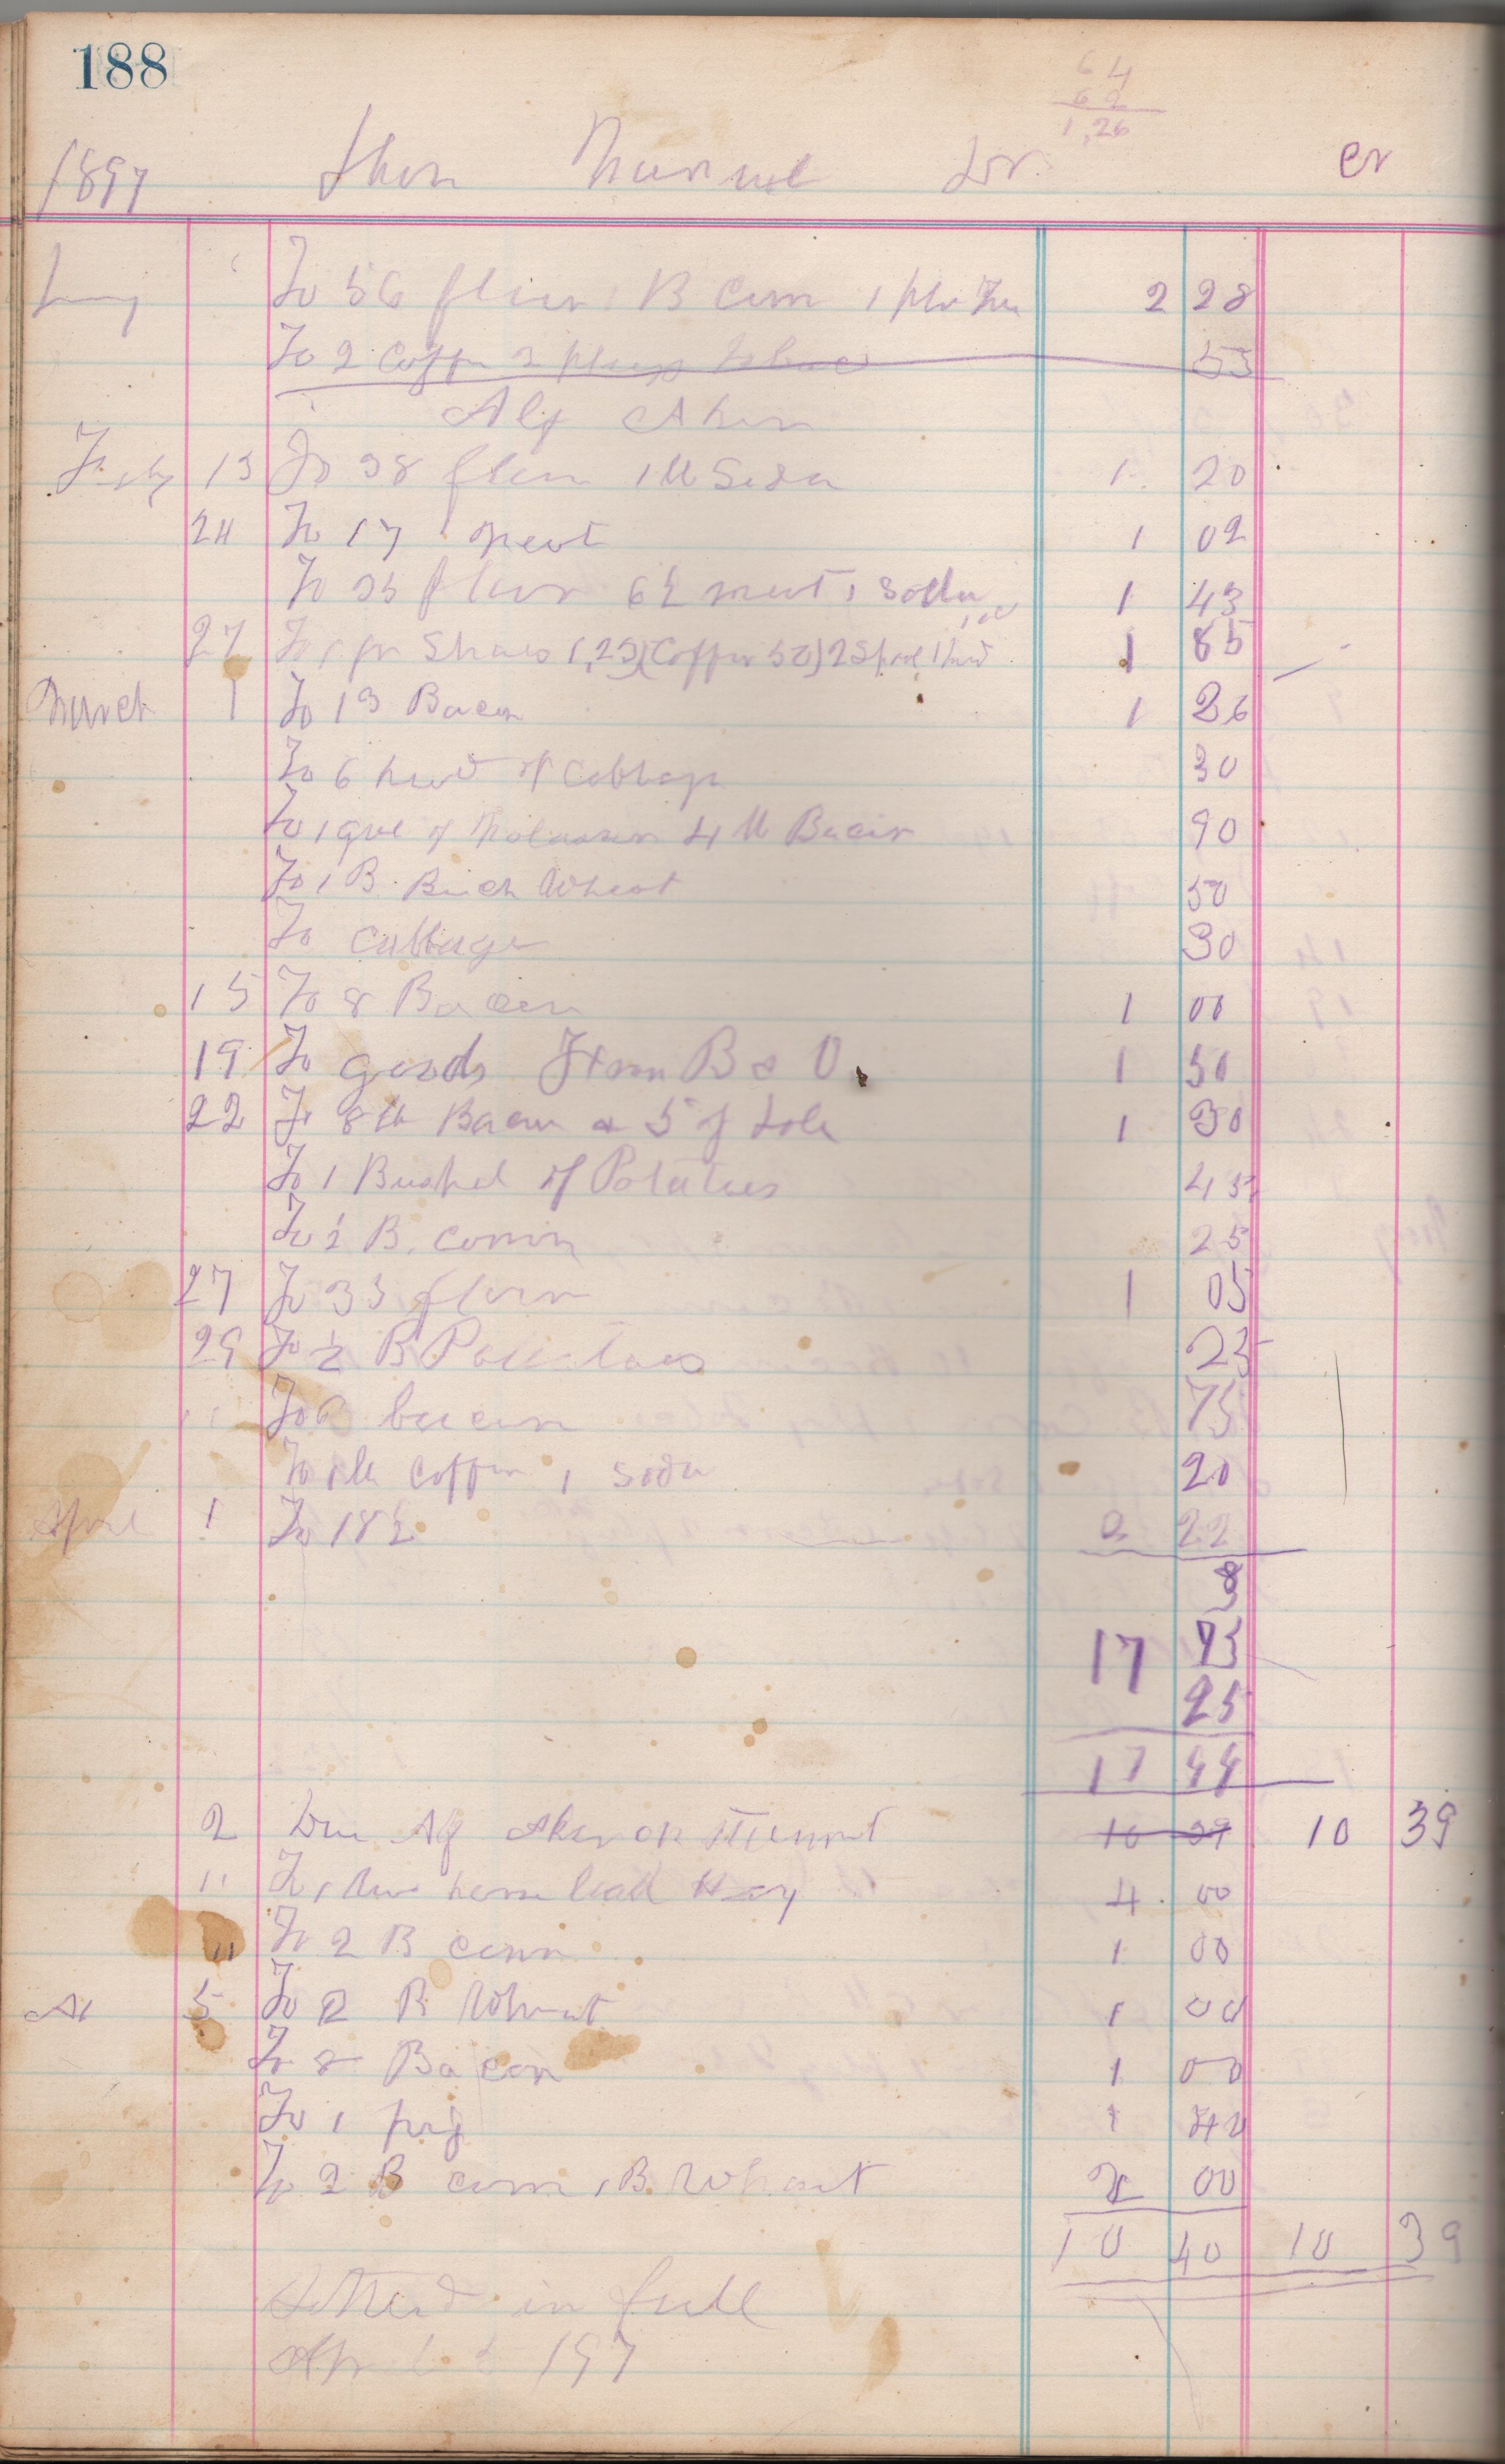 188
64
62
1,26
1897 Dr. cr
To 56 flour 1 B Corn 2 28
To 2 Coffe 3 plugs Tobaco 55
Alf Aker
Feby 13 To 38 flour 1 lb Soda 1 20
24 To 17 meat 1 02
To 35 flour 6½ meat 1 Soda 1 43
27 To 1 pr Shoes 1,25 (Coffe 50) 1 85
March 1 To 13 Bacon 1 26
To 6 head of Cabbage 30
To 1 gal of Molasses 4 lb Bacon 90
To 1 B. Buck Wheat 50
To Cabbage 30
15 To 8 Bacon 1 00
19 To goods From B & O. 1 50
22 To 8 lb Bacon & 5 of Sole 1 30
To 1 Bushel of Potatoes 45
To ½ B. Corn 25
27 To 35 flour 1 05
29 To ½ B Potatoes 25
" To 6 bacon 75
To 1 lb Coffe 1 Soda 20
April 1 To 18½ 2 22
17
25
17 44
2 Due Alf Aker on 10 39 10 39
" To 1 two horse load Hay 4 00
" To 2 B corn 1 00
5 To 2 B Wheat 1 00
To 8 Bacon 1 00
To 1 pig 1 40
To 2 B corn 1 B. Wheat 2 00
10 40 10 39
Settled in full
Apr 197